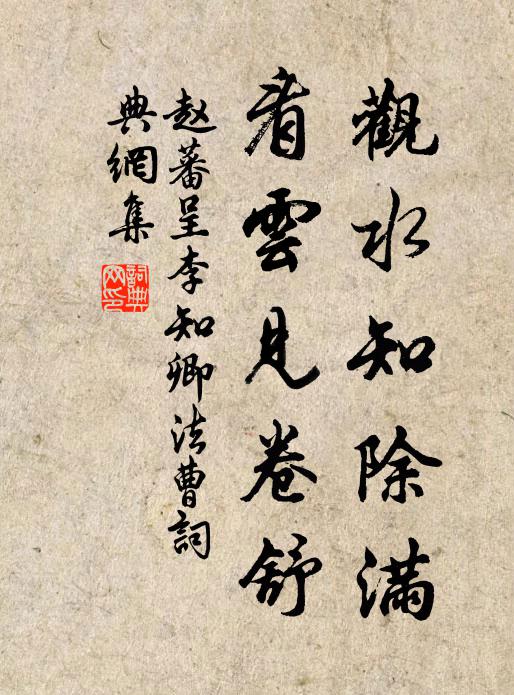 觀水知除滿
看雲見卷舒
赵蕃呈李知卿法曹詞
典網集
詞典網印